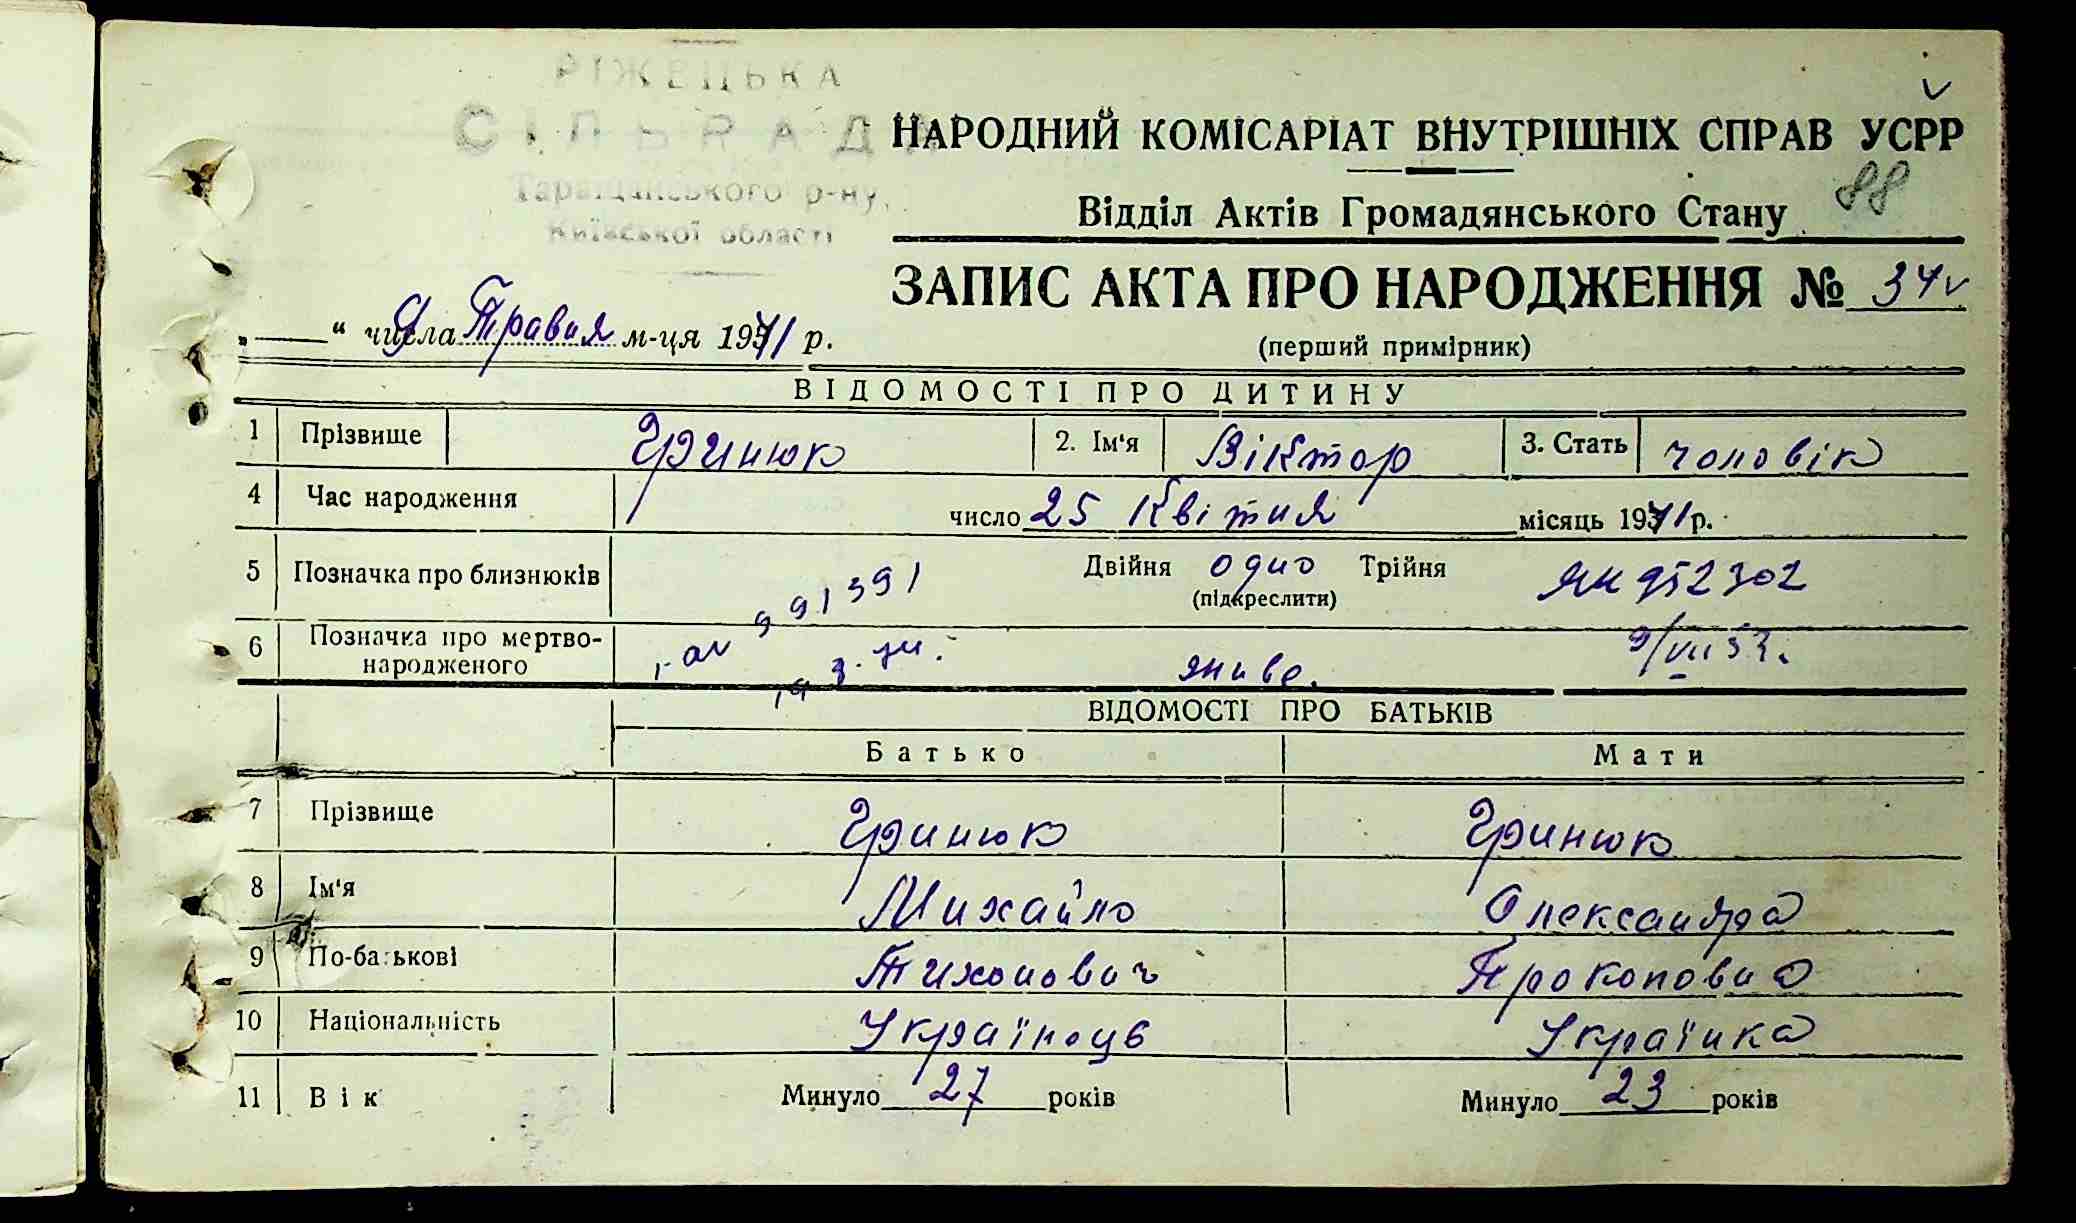 РІЖЕЦЬКА
СІЛЬРАДА
Таращанського р-ну,
Київської області
НАРОДНИЙ КОМІСАРІАТ ВНУТРІШНІХ СПРАВ УСРР
88
Відділ Актів Громадянського Стану
ЗАПИС АКТА ПРО НАРОДЖЕННЯ № 34
„ “ числа 9 Травня м-ця 1941 р.
(перший примірник)
ВІДОМОСТІ ПРО ДИТИНУ
1 Прізвище Гринюк 2. Ім'я Віктор 3. Стать чоловік
4 Час народження число 25 Квітня місяць 1941 р.
5 Позначка про близнюків Двійня одно Трійня ЯЮ 952302
(підкреслити)
991391
6 Позначка про мертво-народженого живе. 9/VII 53.
ВІДОМОСТІ ПРО БАТЬКІВ
Батько Мати
7 Прізвище Гринюк Гринюк
8 Ім'я Михайло Олександра
9 По-батькові Тихонович Прокоповна
10 Національність Українець Українка
11 Вік Минуло 27 років Минуло 23 років